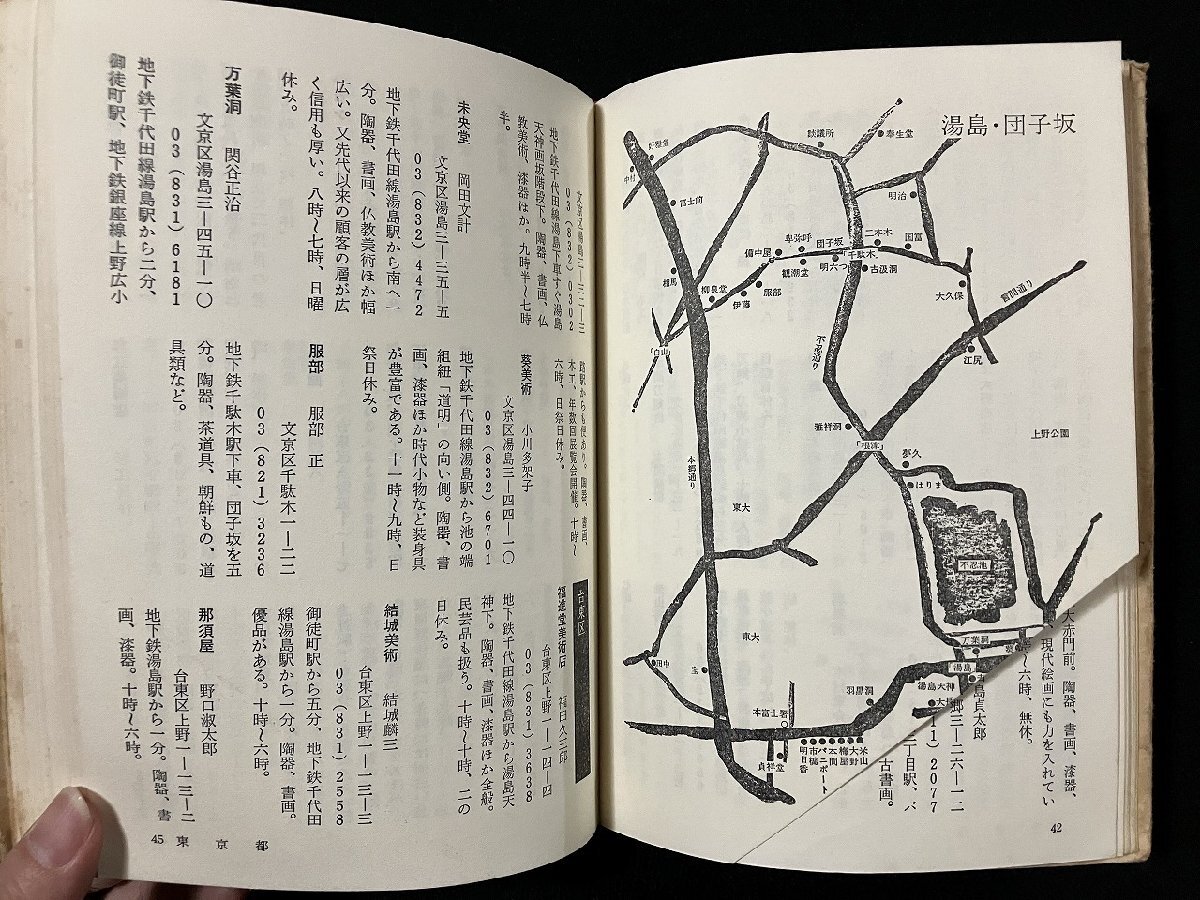 湯島・団子坂
談議所
寿生堂
中村
富士前
明治
二本木
国富
団子坂
卑弥呼
備中屋
「千駄木」
古汲洞
明六つ
観潮堂
服部
伊藤
柳泉堂
相馬
大久保
言問通り
不忍通り
「白山」
江尻
雅祥洞
「根津」
夢久
はりま
上野公園
本郷通り
東大
不忍池
東大
万葉洞
湯島
田中
玉
羽黒洞
湯島天神
本富士署
貞祥堂
42
大赤門前。陶器、書画、漆器、
現代絵画にも力を入れてい
六時、無休。
島貞太郎
郷三—二六—一二
11）2077
三丁目駅、バ
古書画。
文京区湯島三—三二—三
03（832）0302
地下鉄千代田線湯島下車すぐ湯島
天神画坂階段下。陶器、書画、仏
教美術、漆器ほか。九時半〜七時
半。
未央堂　岡田文計
文京区湯島三—三五—五
03（832）4472
地下鉄千代田線湯島駅から南へ一
分。陶器、書画、仏教美術ほか幅
広い。又先代以来の顧客の層が広
く信用も厚い。八時〜七時、日曜
休み。
万葉洞　関谷正治
文京区湯島三—四五—一〇
03（831）6181
地下鉄千代田線湯島駅から二分、
御徒町駅、地下鉄銀座線上野広小
路駅からも便あり。陶器、書画、
木工、年数回展覧会開催。十時〜
六時、日祭日休み。
葵美術　小川多架子
文京区湯島三—四四—一〇
03（832）6701
地下鉄千代田線湯島駅から池の端
組紐「道明」の向い側。陶器、書
画、漆器ほか時代小物など装身具
が豊富である。十一時〜九時、日
祭日休み。
服部　服部　正
文京区千駄木一—二二
03（821）3236
地下鉄千駄木駅下車、団子坂を五
分。陶器、茶道具、朝鮮もの、道
具類など。
台東区
福進堂美術店　福田久三郎
台東区上野一—一—四
03（831）3638
地下鉄千代田線湯島駅から湯島天
神下。陶器、書画、漆器ほか全般。
民芸品も扱う。十時〜十時、二の
日休み。
結城美術　結城麟三
台東区上野一—一三—三
03（831）2558
御徒町駅から五分、地下鉄千代田
線湯島駅から一分。陶器、書画。
優品がある。十時〜六時。
那須屋　野口淑太郎
台東区上野一—一三—二
地下鉄湯島駅から一分。陶器、書
画、漆器。十時〜六時。
45 東京都